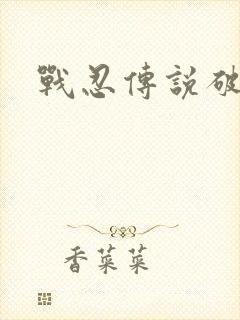 戰忍傳說破
香菜菜